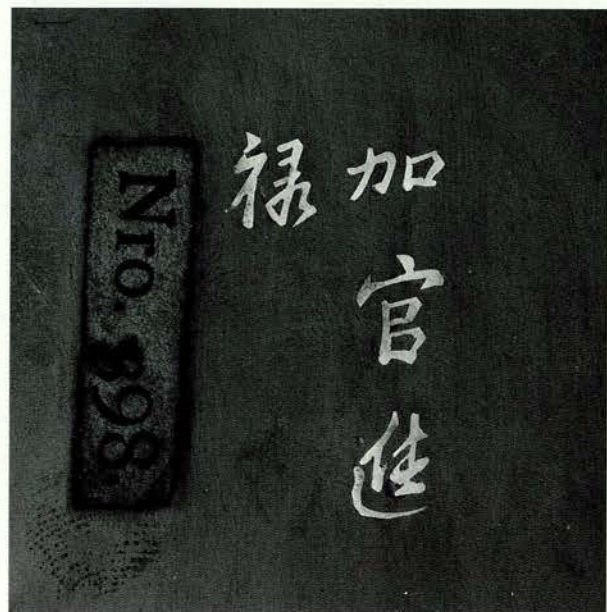 加官進
禄
Nro. 898.